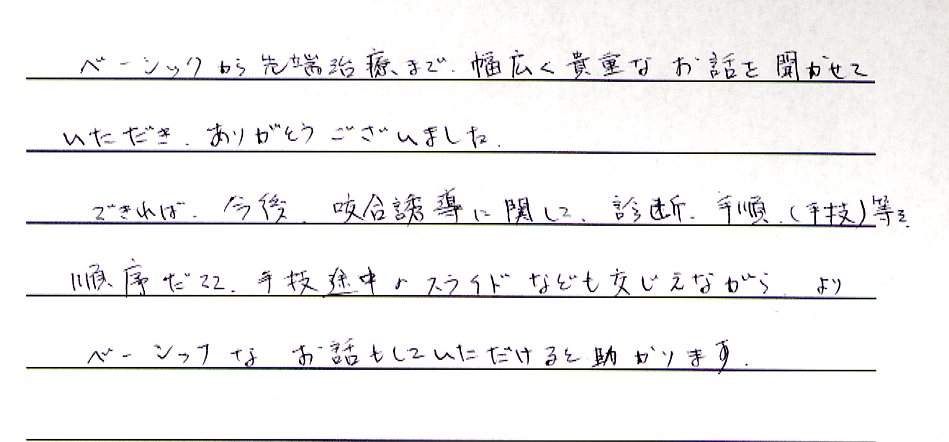 ベーシックから先端治療まで、幅広く貴重なお話を聞かせて
いただき、ありがとうございました。
できれば、今後、咬合誘導に関して、診断、手順、(手技)等を
順序だてて、手技途中のスライドなども交じえながら、より
ベーシックなお話もしていただけると助かります。